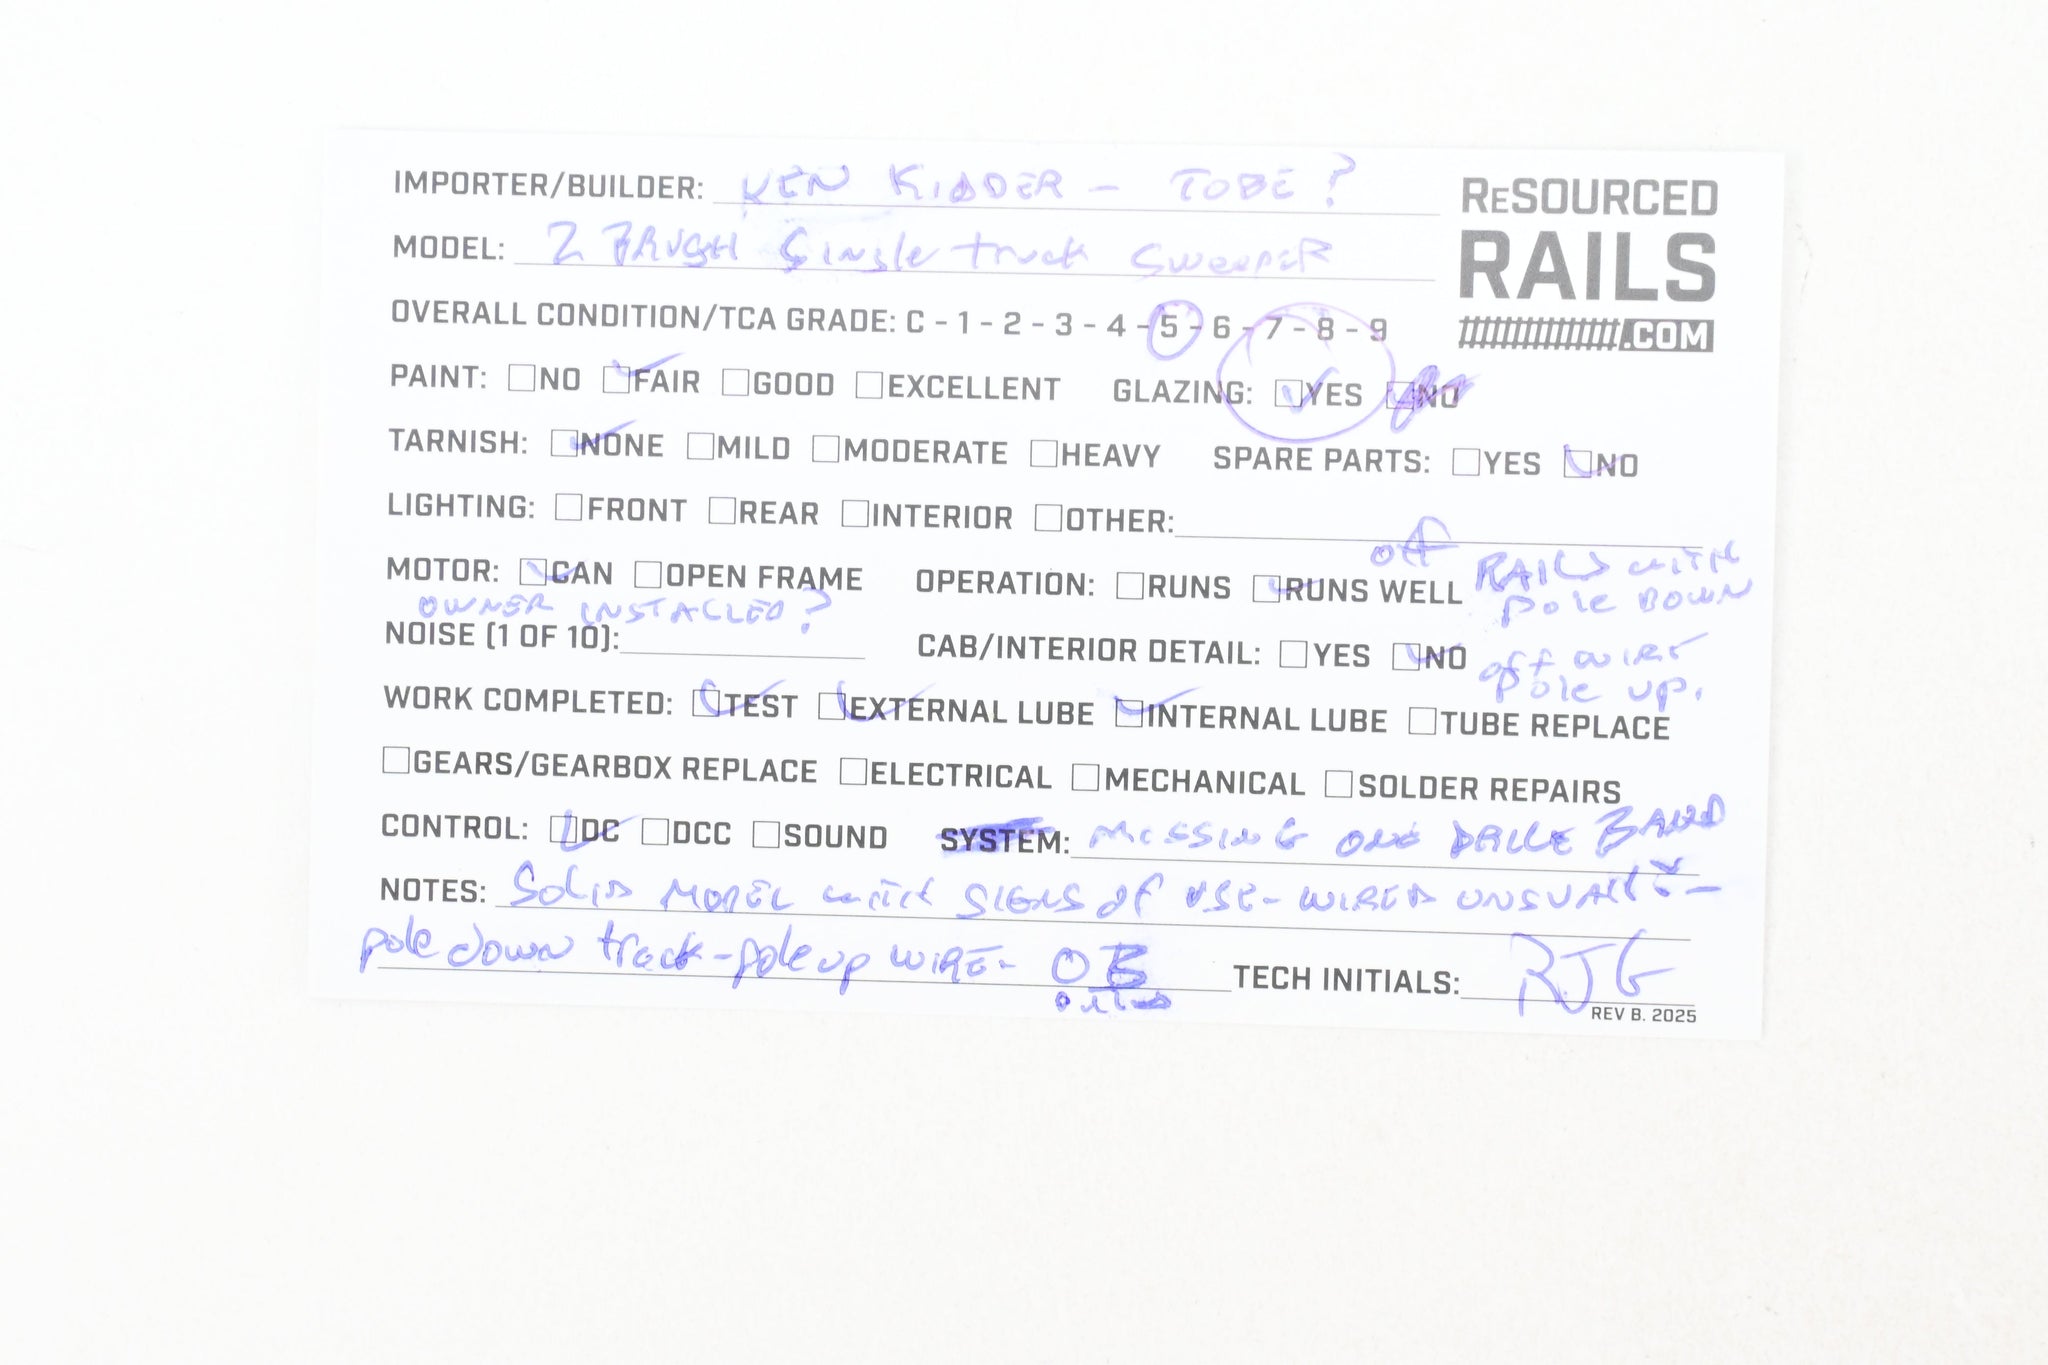 IMPORTER/BUILDER: KEN KIDDER - TOBE?
RESOURCED
RAILS
.COM
MODEL: 2 BRUSH Single truck SWEEPER
OVERALL CONDITION/TCA GRADE: C - 1 - 2 - 3 - 4 - 5 - 6 - 7 - 8 - 9
PAINT: NO FAIR GOOD EXCELLENT GLAZING: YES NO
TARNISH: NONE MILD MODERATE HEAVY SPARE PARTS: YES NO
LIGHTING: FRONT REAR INTERIOR OTHER:
MOTOR: CAN OPEN FRAME OPERATION: RUNS RUNS WELL off RAILS with
pole DOWN
OWNER INSTALLED?
NOISE (1 OF 10): CAB/INTERIOR DETAIL: YES NO off wire
pole up.
WORK COMPLETED: TEST EXTERNAL LUBE INTERNAL LUBE TUBE REPLACE
GEARS/GEARBOX REPLACE ELECTRICAL MECHANICAL SOLDER REPAIRS
CONTROL: DC DCC SOUND SYSTEM: MISSING ONE DRIVE BAND
NOTES: SOLID MODEL with SIGNS of USE - WIRED UNSUALLY -
pole down track - pole up WIRE - OB
TECH INITIALS: RJG
REV B. 2025